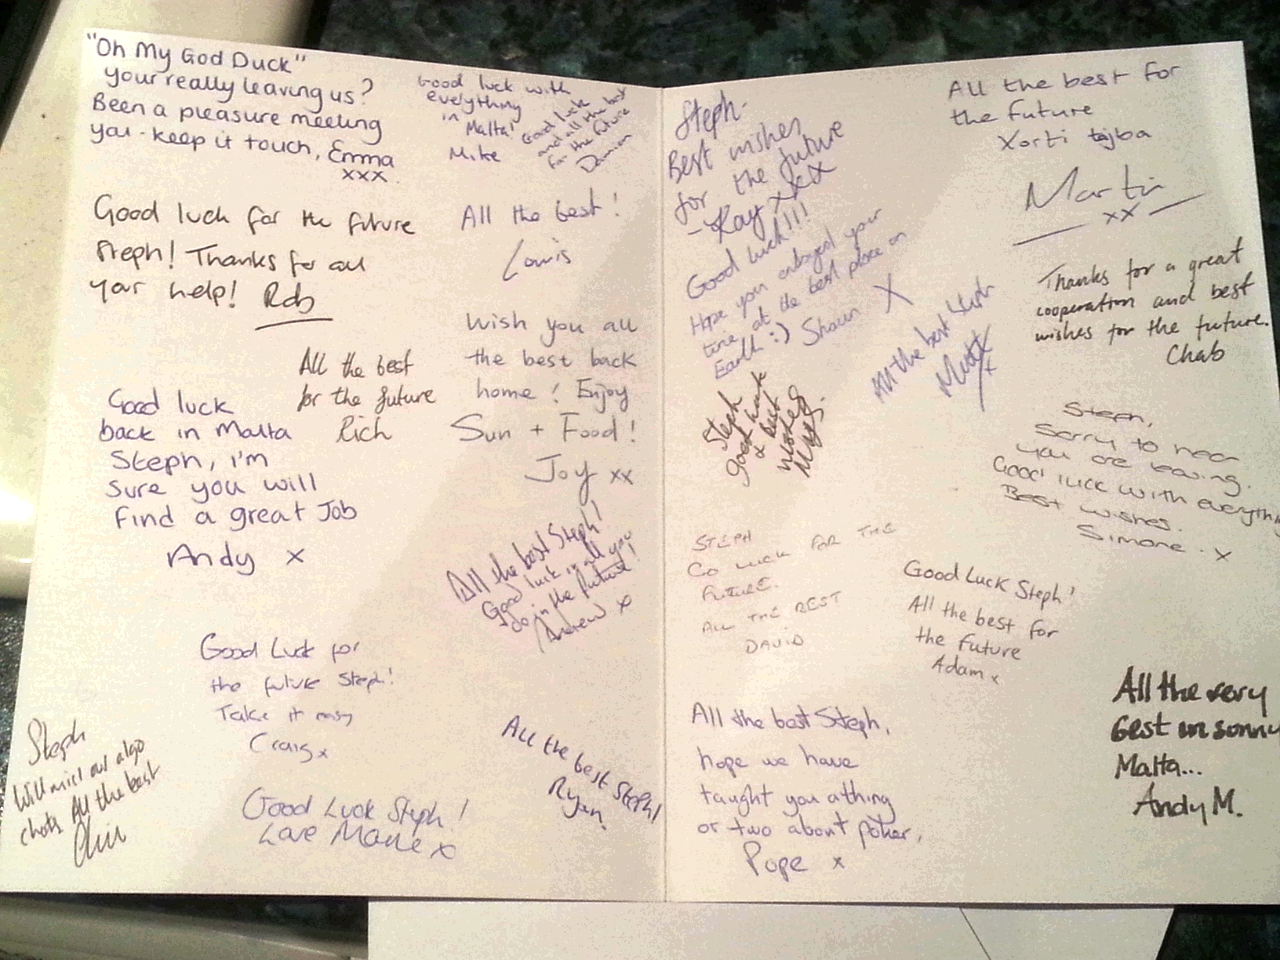 "Oh My God Duck"
your really leaving us?
Been a pleasure meeting
you - keep it touch, Emma
xxx
Good luck with
everything
in
Malta!
Mike
Good luck
and all the best
for the future
Damian
Good luck for the future
Steph! Thanks for all
your help! Rob
All the best!
Lewis
All the best
for the future
Rich
Wish you all
the best back
home! Enjoy
Sun + Food!
Joy xx
Good luck
back in Malta
Steph, i'm
sure you will
find a great Job
Andy x
All the best Steph!
Good luck in all you
do in the future!
Andrew x
Good Luck for
the future Steph!
Take it easy
Craig x
Steph
Will miss our algo
chats All the best
All the best Steph!
Ryan.
Good Luck Steph!
Love Marie x
Steph-
Best wishes
for the future
- Kay xxx
Good luck!!!
Hope you enjoyed your
time at the best place on
Earth :) Shaun X
All the best Steph
Matt x
Steph
good luck
& best
wishes
All the best for
the future
Xorti tajba
Martin
xx
Thanks for a great
cooperation and best
wishes for the future.
Chab
Steph,
Sorry to hear
you are leaving.
Good luck with everything
Best wishes.
Simone. x
STEPH
GO LUCK FOR THE
FUTURE.
ALL THE BEST
DAVID
Good Luck Steph!
All the best for
the future
Adam x
All the best Steph,
hope we have
taught you a thing
or two about poker,
Pope x
All the very
best in sunny
Malta...
Andy M.